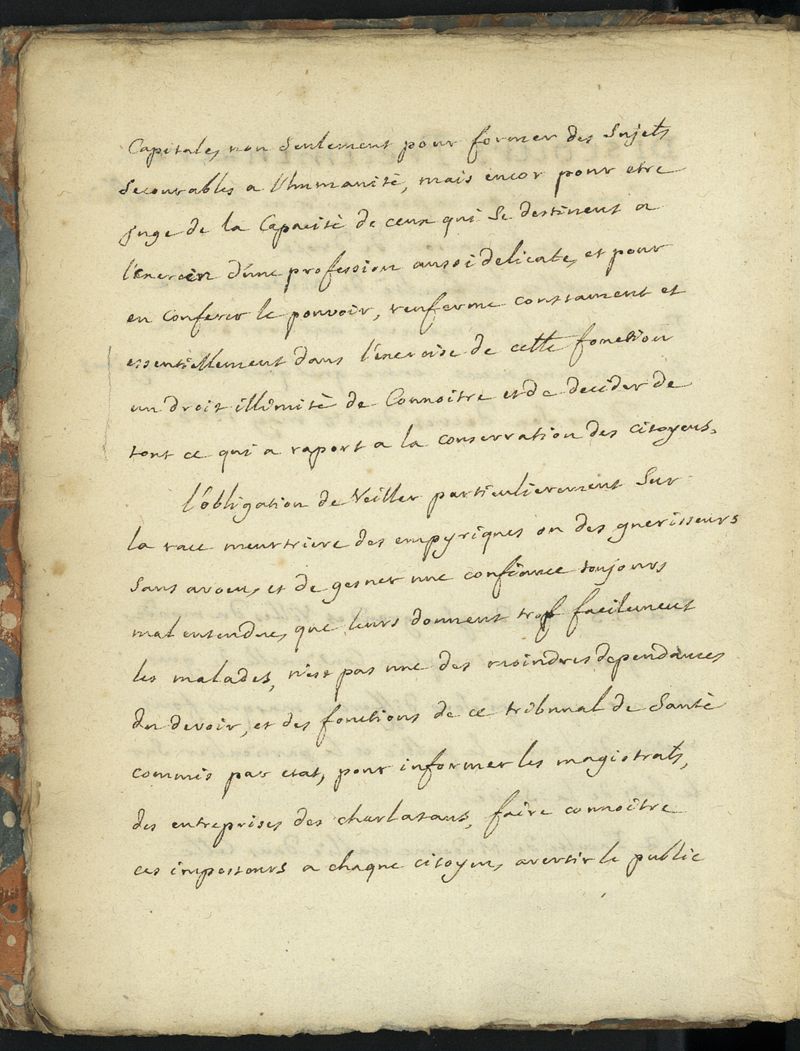 Capitales, non Seulement pour former des Sujets
Secourables a l'humanité, mais encor pour etre
Juge de la Capacité de ceux qui Se destinent a
l'exercice d'une profession aussi delicate, et pour
en conferer le pouvoir, renferme constament et
essentiellement dans l'exercise de cette fonction
un droit illimité de Connoitre et de decider de
tout ce qui a raport a la conservation des citoyens.
l'obligation de Veiller particulierement Sur
la race meurtriere des empyriques ou des guerisseurs
Sans aveu, et de gesner une confiance toujours
mal entendue, que leurs donnent trop facilement
les malades, n'est pas une des moindres dependances
du devoir, et des fonctions de ce tribunal de Santé
commis par etat, pour informer les magistrats,
des entreprises des charlatans, faire connoitre
ces imposteurs a chaque citoyen, avertir le public